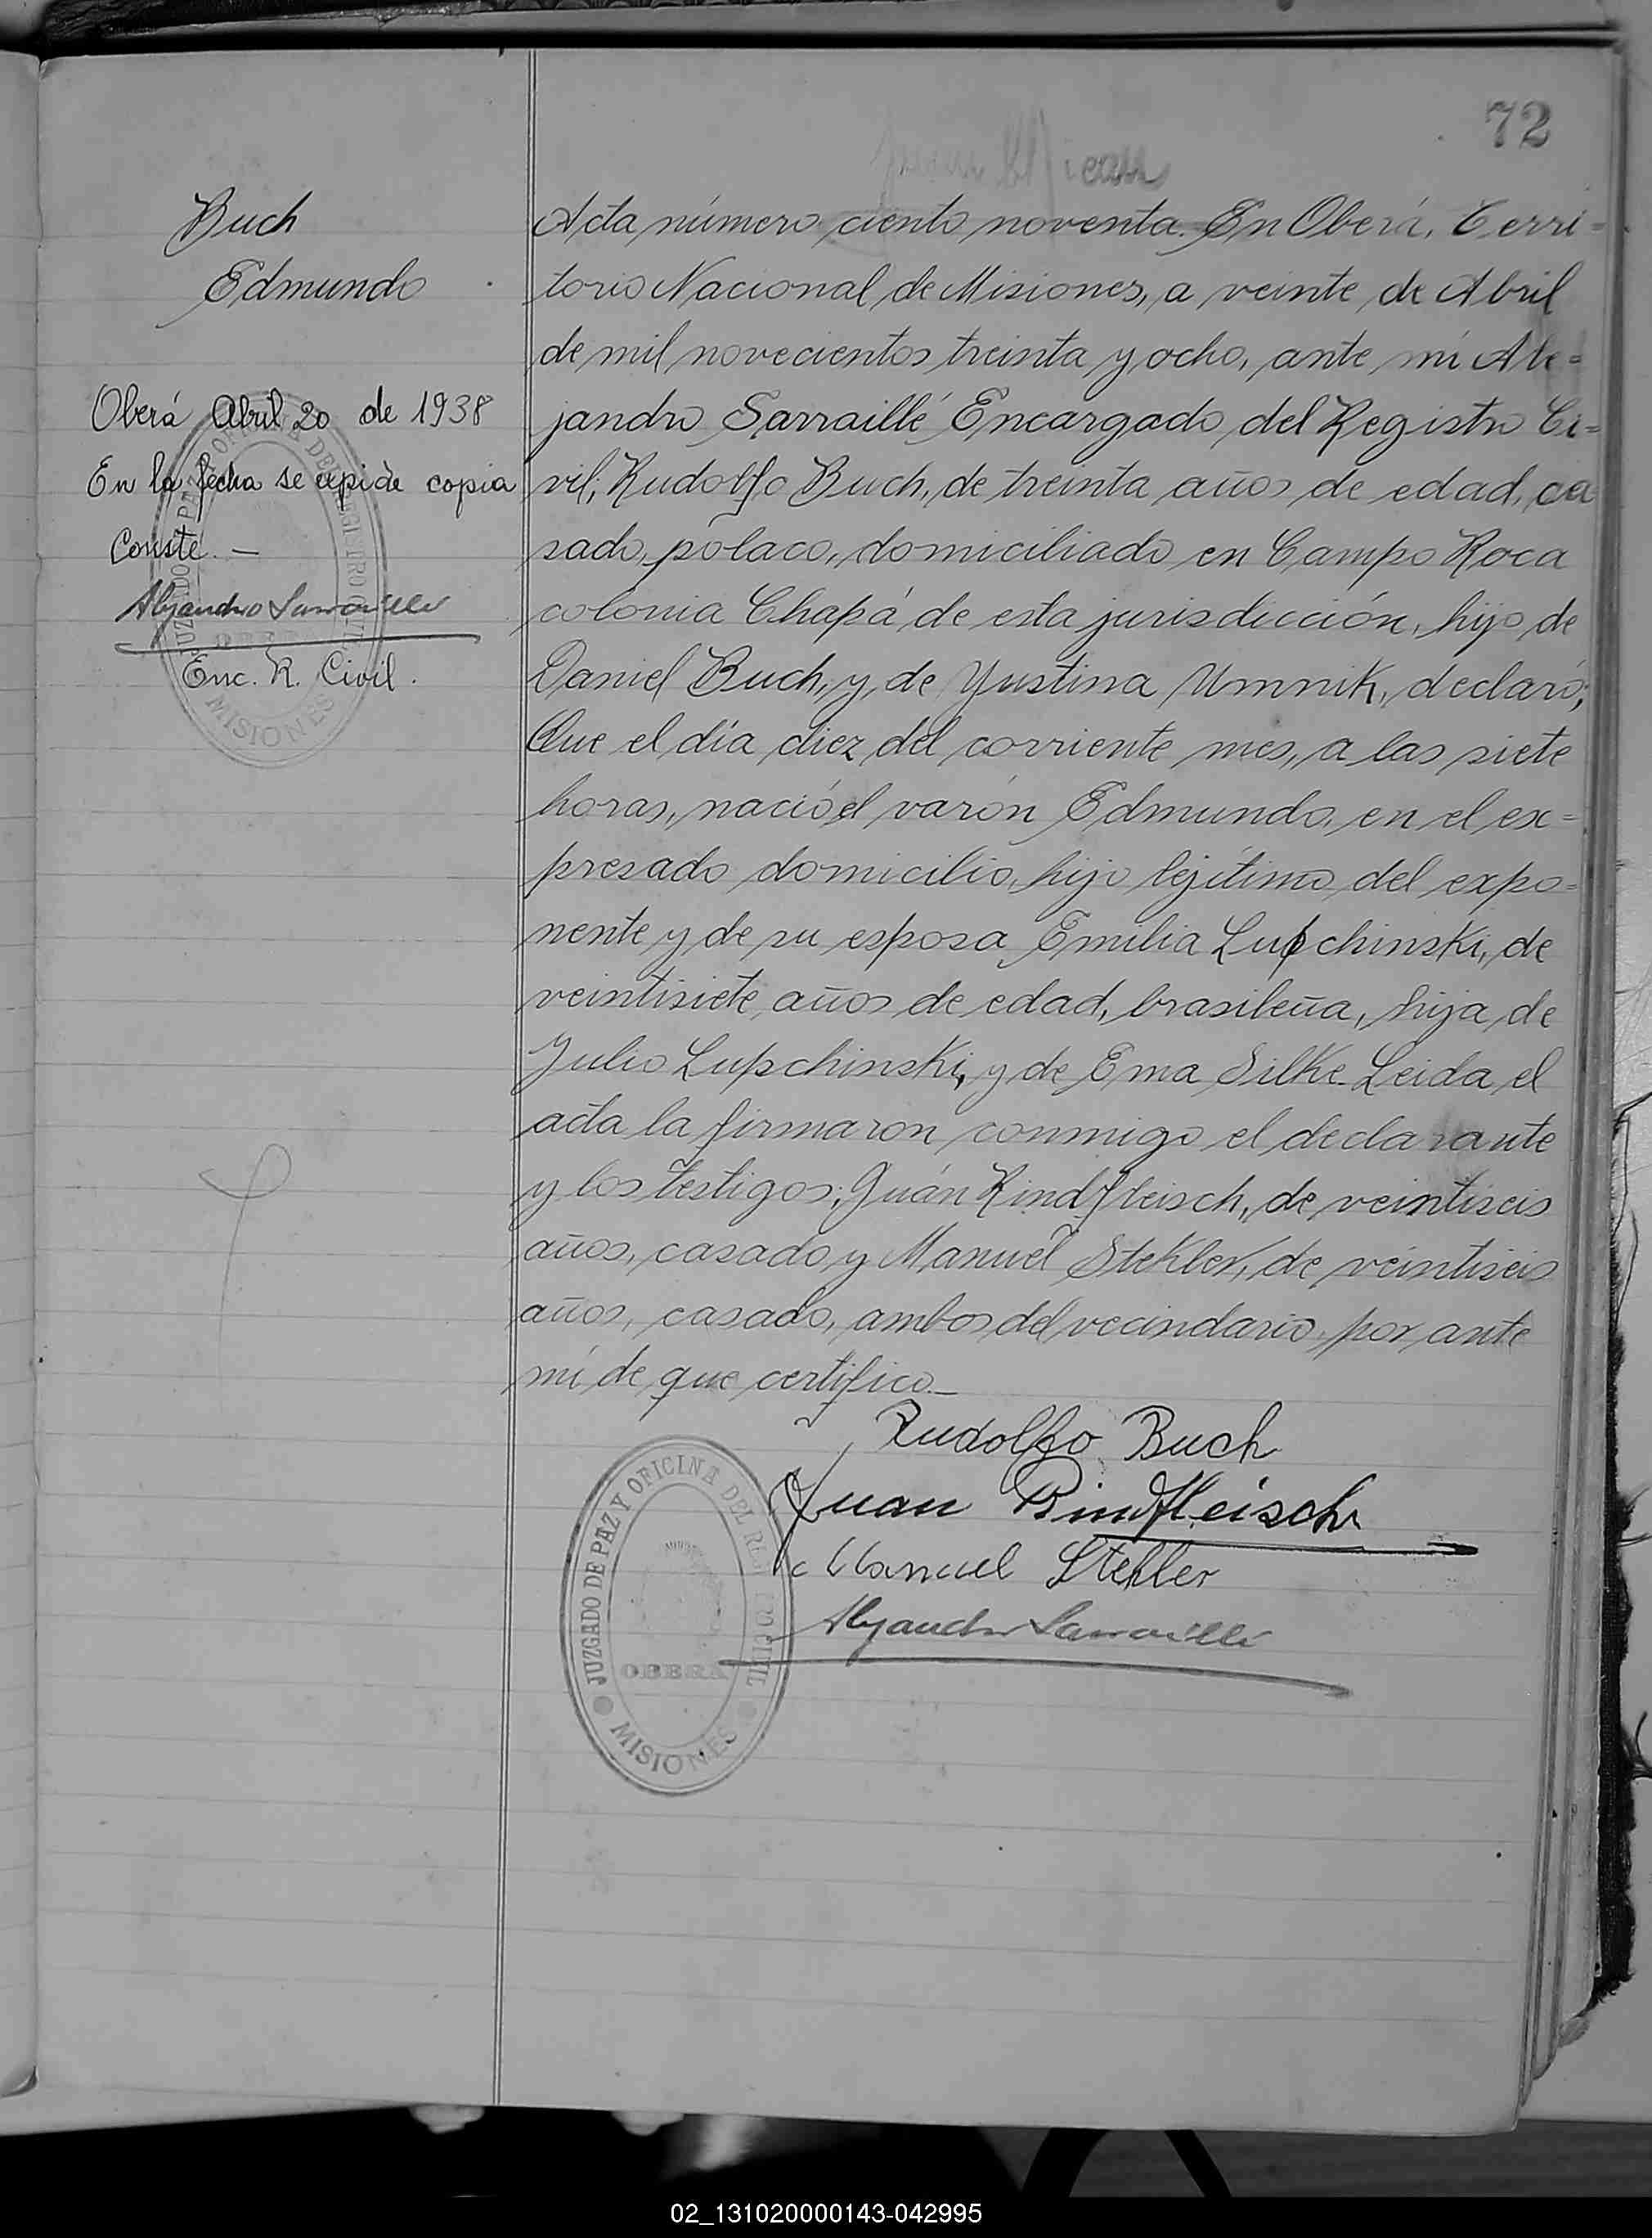 72
Buch
Edmundo
Oberá Abril 20 de 1938
En la fecha se expide copia
Conste. —
Alejandro Sarraillé
Enc. R. Civil.
JUZGADO DE PAZ Y OFICINA DEL REGISTRO CIVIL
OBERA
MISIONES
Acta número ciento noventa. En Oberá, Terri=
torio Nacional de Misiones, a veinte de Abril
de mil novecientos treinta y ocho, ante mi Ale=
jandro Sarraillé Encargado del Registro Ci=
vil; Rudolfo Buch, de treinta años de edad, ca
sado, polaco, domiciliado en Campo Roca
colonia Chapá de esta jurisdicción, hijo de
Daniel Buch, y de Yustina Umnik, declaró;
Que el día diez del corriente mes, a las siete
horas, nació el varón Edmundo, en el ex=
presado domicilio, hijo lejítimo del expo=
nente y de su esposa Emilia Lupchinski, de
veintisiete años de edad, brasileña, hija de
Julio Lupchinski, y de Ema Silke. Leida el
acta la firmaron conmigo el declarante
y los testigos; Juán Rindfleisch, de veintiseis
años, casado y Manuel Stekler, de veintiseis
años, casado, ambos del vecindario, por ante
mí de que certifico.—
Rudolfo Buch
Juan Rindfleisch
Manuel Stekler
Alejandro Sarraillé
JUZGADO DE PAZ Y OFICINA DEL REGISTRO CIVIL
OBERA
MISIONES
02_131020000143-042995